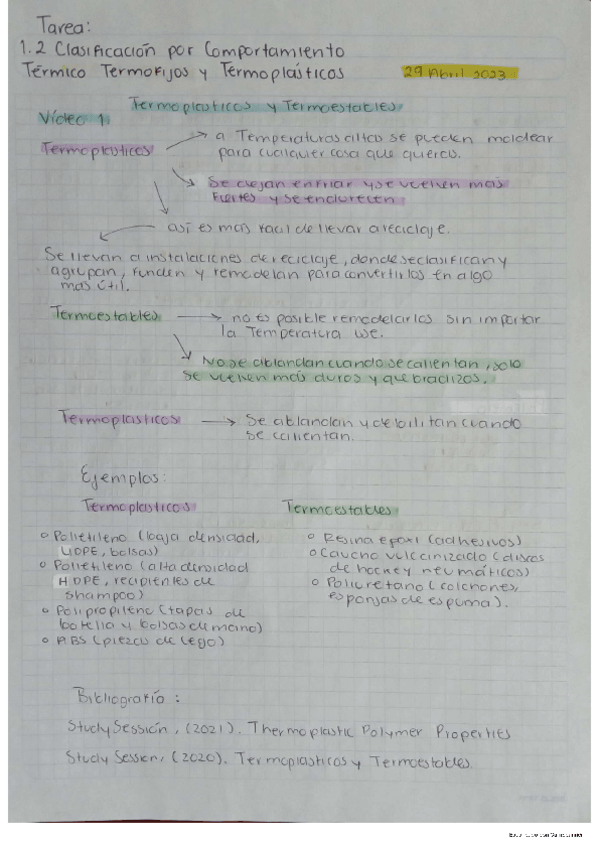 Tarea:
1.2 Clasificación por Comportamiento
Térmico Termofijos y Termoplásticos 29 Abril 2023
Termoplasticos y Termoestables
Vídeo 1
Termoplasticos → a Temperaturas altas se pueden moldear
para cualquier cosa que queras.
Se dejan enfriar y se vuelven más
fuertes y se endurecen
así es más facil de llevar a reciclaje.
Se llevan a instalaciones de reciclaje, donde se clasifican y
agrupan, funden y remodelan para convertirlos en algo
más útil.
Termoestables → no es posible remodelarlos sin importar
la Temperatura use.
No se ablandan cuando se calientan, solo
se vuelven más duros y quebradizos.
Termoplasticos → Se ablandan y debilitan cuando
se calientan.
Ejemplos:
Termoplasticos Termoestables
o Polietileno (baja densidad,
LDPE, bolsas)
o Polietileno (alta densidad
HDPE, recipientes de
shampoo)
o Polipropileno (tapas de
botella y bolsas de mano)
o ABS (piezas de Lego)
o Resina epoxi (adhesivos)
o Caucho vulcanizado (discos
de hockey neumáticos)
o Poliuretano (colchones,
esponjas de espuma).
Bibliografía:
Study Session, (2021). Thermoplastic Polymer Properties
Study Session, (2020). Termoplasticos y Termoestables.